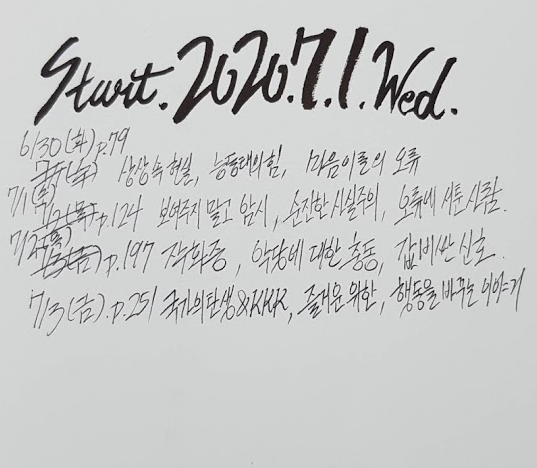 Start. 2020.7.1. Wed.
6/30(화)p.79
상상 속 현실, 능동태의 힘, 마음이론의 오류
7/1(수) p.124 보여주지 말고 암시, 순진한 사실주의, 오류에 서툰 사람.
7/2(목) p.197 작화증, 악당에 대한 충동, 값비싼 신호.
7/3(금).p.251 국가의 탄생&KKK, 즐거운 위한, 행동을 바꾸는 이야기